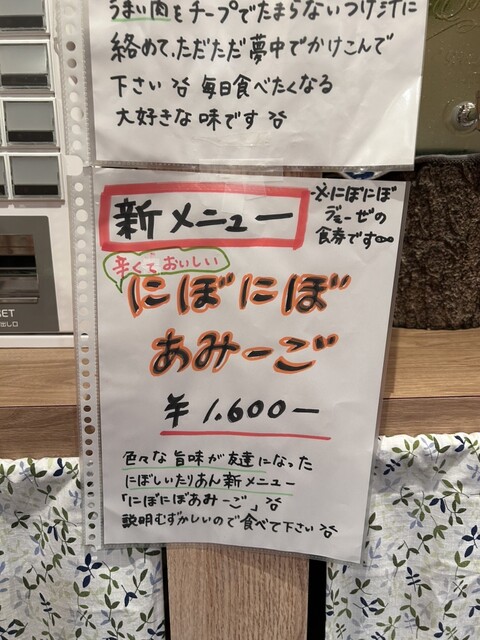 うまい肉をチープでたまらないつけ汁に
絡めて、ただただ夢中でかけこんで
下さい 毎日食べたくなる
大好きな味です
新メニュー
※にぼにぼ
ディーゼの
食券です
辛くておいしい
にぼにぼ
あみーご
¥1,600-
色々な旨味が友達になった
にぼしいたりあん新メニュー
「にぼにぼあみーご」
説明むずかしいので食べて下さい